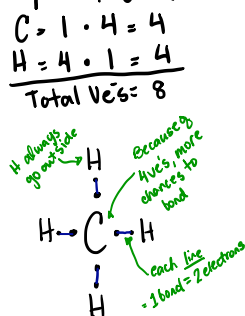 C = 1 · 4 = 4
H = 4 · 1 = 4
Total Ve⁻s = 8
H always
go outside
Because of
4ve⁻s, more
chances to
bond
H
H C H
H
each line
= 1 bond = 2 electrons